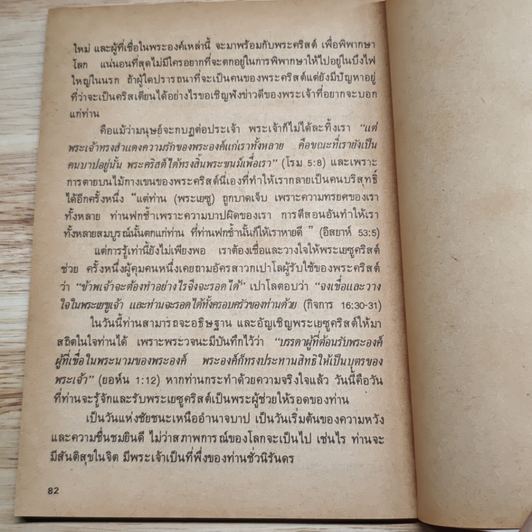 ใหม่ และผู้ที่เชื่อในพระองค์เหล่านี้ จะมาพร้อมกับพระคริสต์ เพื่อพิพากษา
โลก แน่นอนที่สุดไม่มีใครอยากที่จะตกอยู่ในการพิพากษาให้ไปอยู่ในบึงไฟ
ใหญ่ในนรก ถ้าผู้ใดปรารถนาที่จะเป็นคนของพระคริสต์แต่ยังมีปัญหาอยู่
ที่ว่าจะเป็นคริสเตียนได้อย่างไรขอเชิญฟังข่าวดีของพระเจ้าที่อยากจะบอก
แก่ท่าน
คือแม้ว่ามนุษย์จะกบฏต่อประเจ้า พระเจ้าก็ไม่ได้ละทิ้งเรา “แต่
พระเจ้าทรงสำแดงความรักของพระองค์แก่เราทั้งหลาย คือขณะที่เรายังเป็น
คนบาปอยู่นั้น พระคริสต์ได้ทรงสิ้นพระชนม์เพื่อเรา” (โรม 5:8) และเพราะ
การตายบนไม้กางเขนของพระคริสต์นี่เองที่ทำให้เรากลายเป็นคนบริสุทธิ์
ได้อีกครั้งหนึ่ง “แต่ท่าน (พระเยซู) ถูกบาดเจ็บ เพราะความทรยศของเรา
ทั้งหลาย ท่านฟกช้ำเพราะความบาปผิดของเรา การตีสอนอันทำให้เรา
ทั้งหลายสมบูรณ์นั้นตกแก่ท่าน ที่ท่านฟกช้ำนั้นก็ให้เราหายดี ” (อิสยาห์ 53:5)
แต่การรู้เท่านี้ยังไม่เพียงพอ เราต้องเชื่อและวางใจให้พระเยซูคริสต์
ช่วย ครั้งหนึ่งผู้คุมคนหนึ่งเคยถามอัครสาวกเปาโลผู้รับใช้ของพระคริสต์
ว่า “ข้าพเจ้าจะต้องทำอย่างไรจึงจะรอดได้” เปาโลตอบว่า “จงเชื่อและวาง
ใจในพระเยซูเจ้า และท่านจะรอดได้ทั้งครอบครัวของท่านด้วย (กิจการ 16:30-31)
ในวันนี้ท่านสามารถจะอธิษฐาน และอัญเชิญพระเยซูคริสต์ให้มา
สถิตในใจท่านได้ เพราะพระวจนะมีบันทึกไว้ว่า “บรรดาผู้ที่ต้อนรับพระองค์
ผู้ที่เชื่อในพระนามของพระองค์ พระองค์ก็ทรงประทานสิทธิให้เป็นบุตรของ
พระเจ้า” (ยอห์น 1:12) หากท่านกระทำด้วยความจริงใจแล้ว วันนี้คือวัน
ที่ท่านจะรู้จักและรับพระเยซูคริสต์เป็นพระผู้ช่วยให้รอดของท่าน
เป็นวันแห่งชัยชนะเหนืออำนาจบาป เป็นวันเริ่มต้นของความหวัง
และความชื่นชมยินดี ไม่ว่าสภาพการณ์ของโลกจะเป็นไป เช่นไร ท่านจะ
มีสันติสุขในจิต มีพระเจ้าเป็นที่พึ่งของท่านชั่วนิรันดร
82